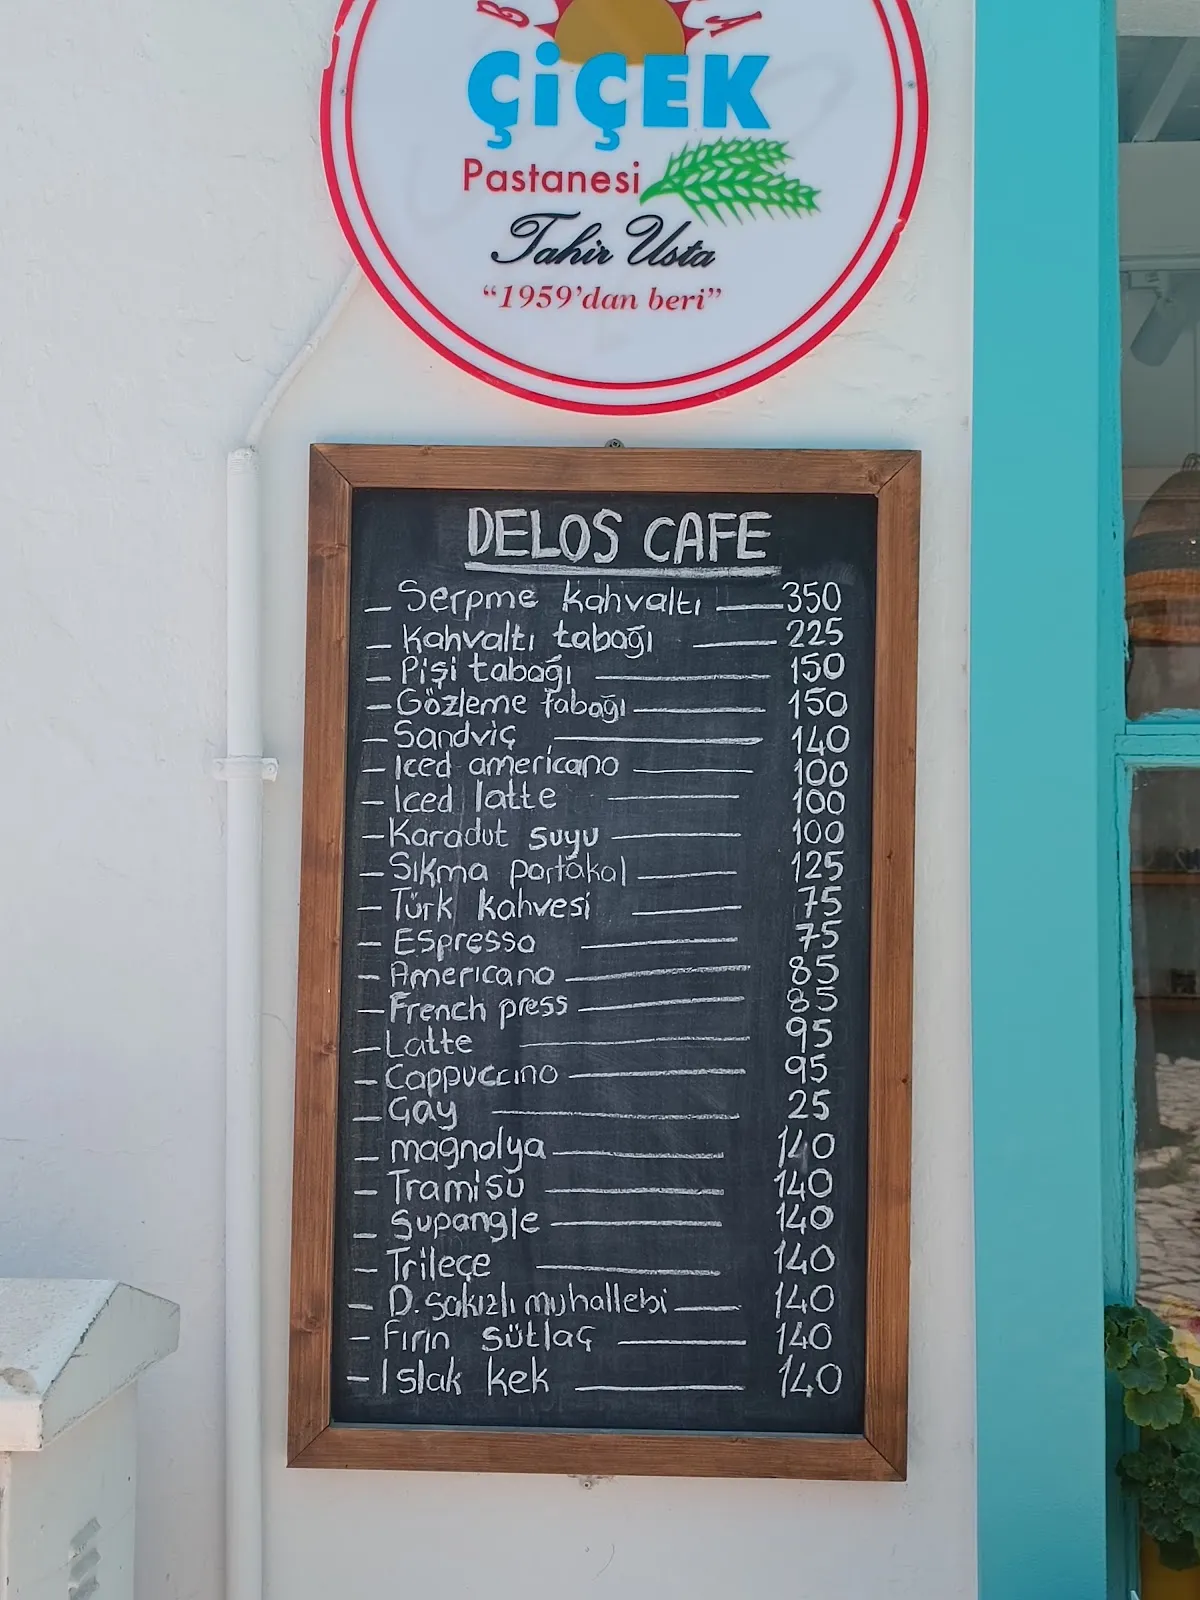 ÇiÇEK
Pastanesi
Tahir Usta
"1959'dan beri"
DELOS CAFE
– Serpme kahvaltı — 350
– Kahvaltı tabağı — 225
– Pişi tabağı — 150
– Gözleme tabağı — 150
– Sandviç — 140
– Iced americano — 100
– Iced latte — 100
– Karadut suyu — 100
– Sıkma portakal — 125
– Türk kahvesi — 75
– Espresso — 75
– Americano — 85
– French press — 85
– Latte — 95
– Cappuccino — 95
– Çay — 25
– magnolya — 140
– Tramisu — 140
– Supangle — 140
– Trileçe — 140
– D. Sakızlı muhallebi — 140
– Fırın sütlaç — 140
– Islak kek — 140